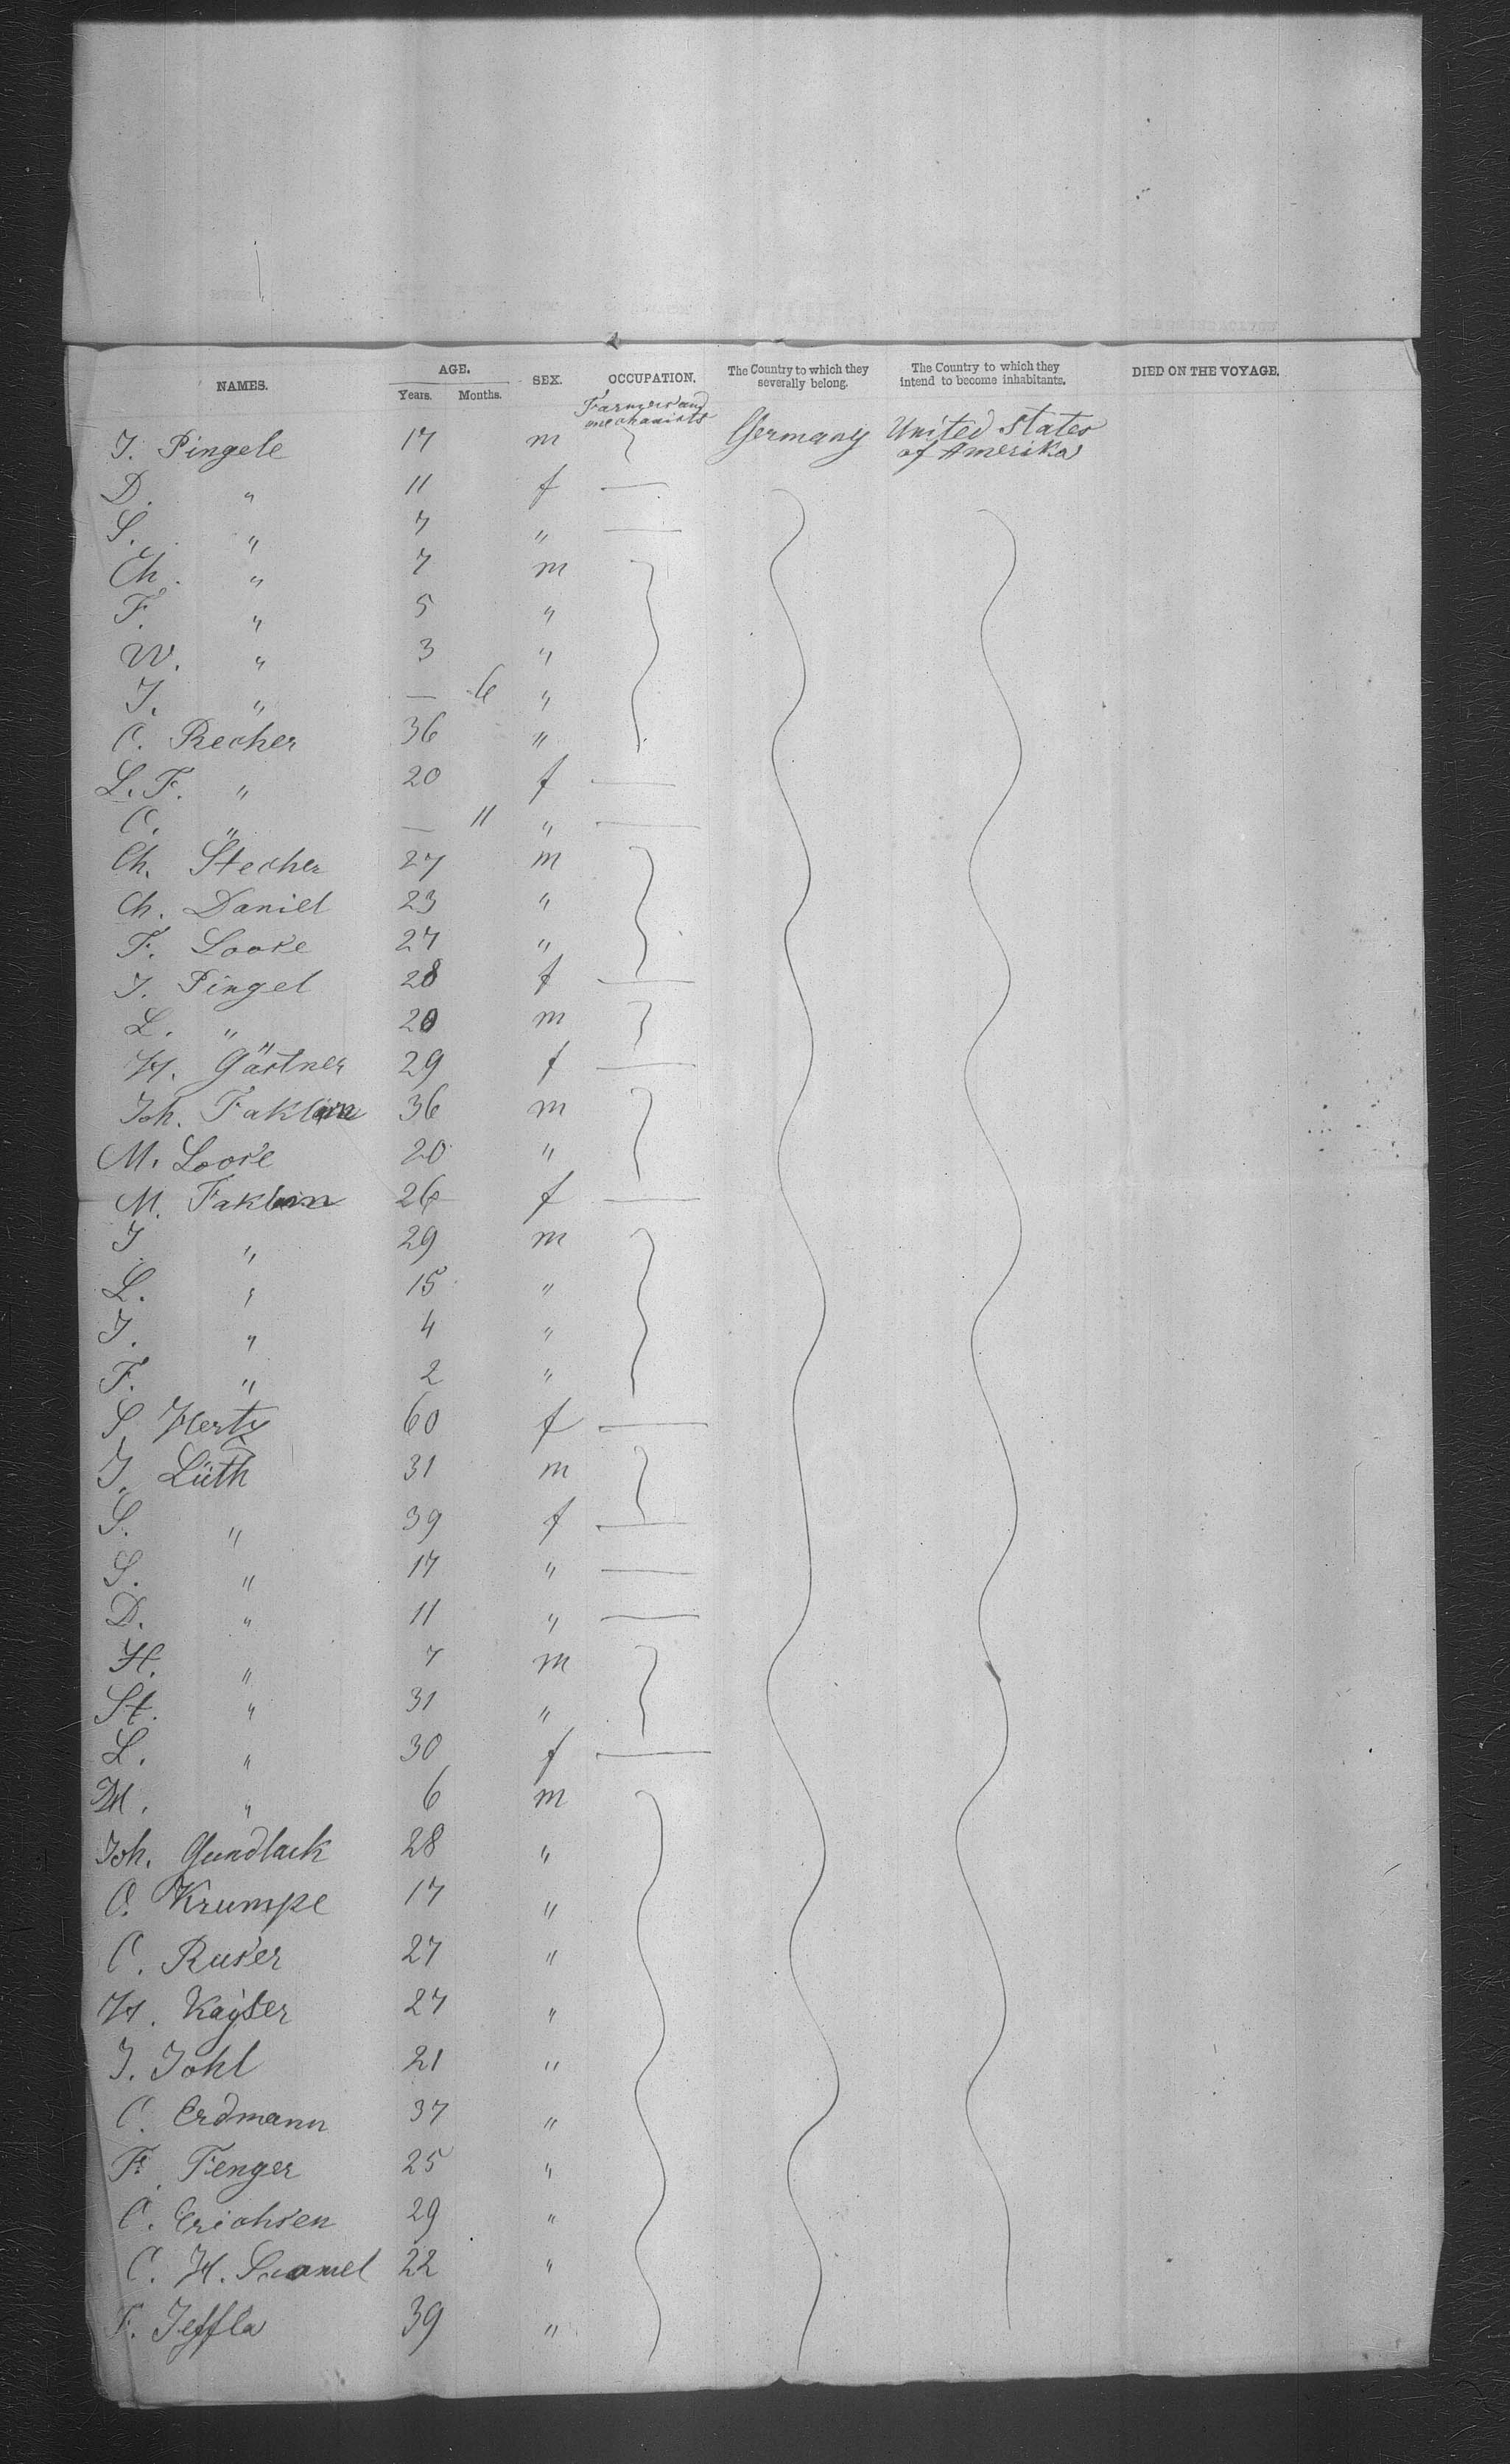 NAMES. AGE. Years. Months. SEX. OCCUPATION. The Country to which they severally belong. The Country to which they intend to become inhabitants. DIED ON THE VOYAGE.
Farmers and mechanists
J. Pingele 17 m Germany United States of Amerika
D. " 11 f —
S. " 7 " —
Ch. " 7 m
F. " 5 "
W. " 3 "
J. " — 6 "
C. Recher 36 "
L. F. " 20 f —
C. " — 11 " —
Ch. Stecher 27 m
Ch. Daniel 23 "
F. Loose 27 "
J. Pingel 28 f —
L. " 20 m
H. Gästner 29 f —
Joh. 36 m
M. Loose 20 "
M. 26 f —
J. " 29 m
L. " 15 "
J. " 4 "
F. " 2 "
S. Hertz 60 f —
J. Lüth 31 m
S. " 39 f —
S. " 17 " —
D. " 11 " —
H. " 7 m
St. " 31 "
L. " 30 f —
M. " 6 m
Joh. Gundlack 28 "
O. Krumpe 17 "
C. Ruser 27 "
H. Kayser 27 "
J. Johl 21 "
C. Erdmann 37 "
F. Fenger 25 "
C. Erichsen 29 "
C. H. 22 "
F. Jeffla 39 "